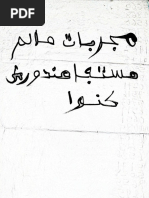 مجربات مالم
مستفا هندورکی
کنوا